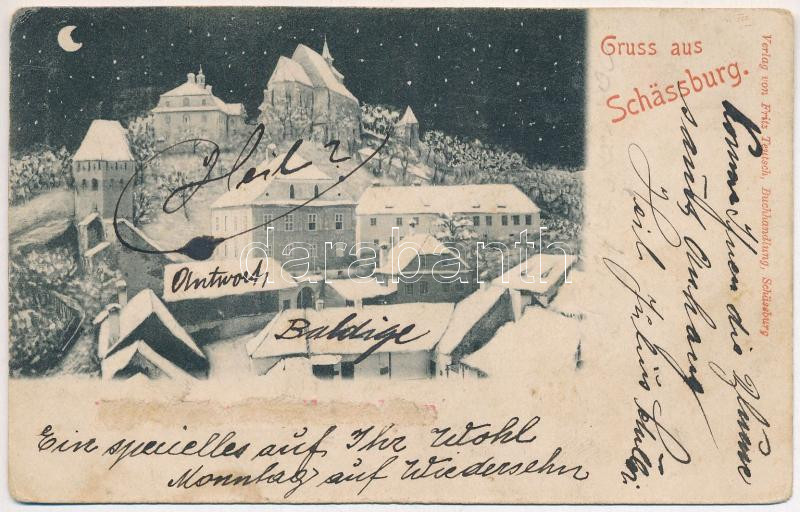 Gruss aus
Schässburg.
Verlag von Fritz Teutsch, Buchhandlung, Schässburg
Heil?
Antwort,
Baldige
darabanth
Ein specielles auf Ihr Wohl
Monntag auf Wiedersehn
Ihnen die Blume
sammt Anhang
Heil